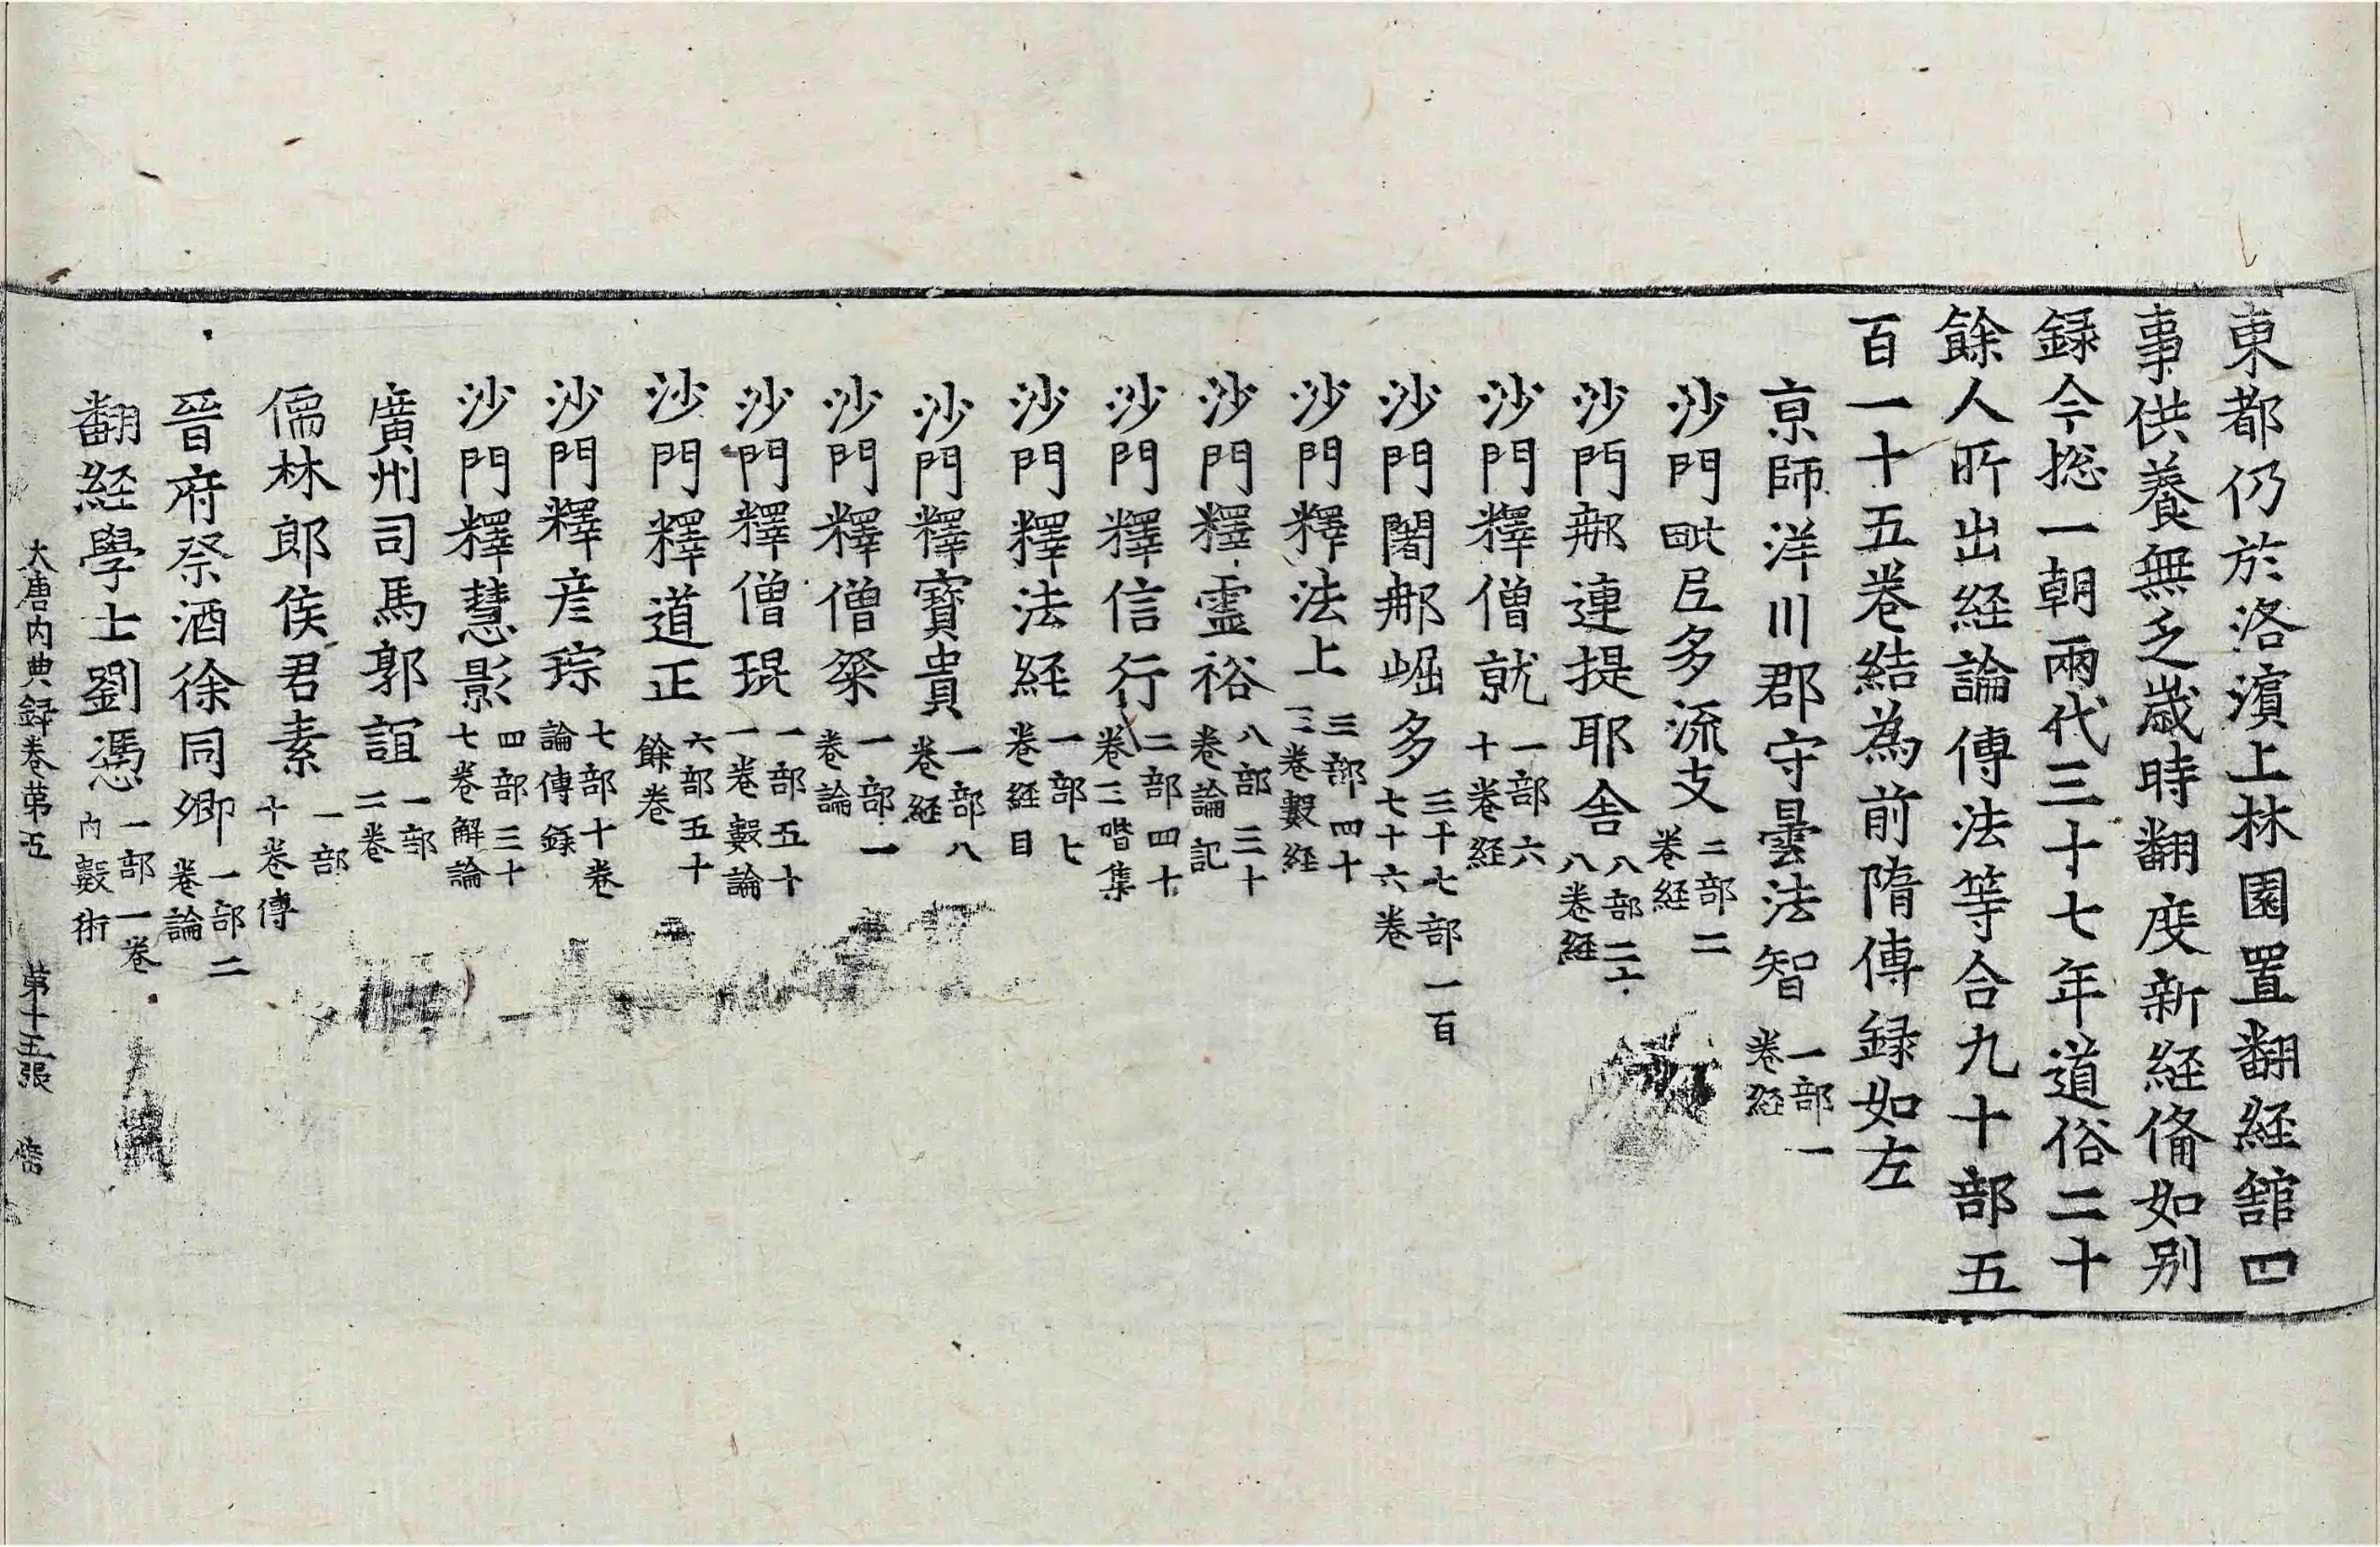 東都仍於洛濵上林園置翻経舘四
事供養無乏歳時翻度新経俻如别
録今揔一朝兩代三十七年道俗二十
餘人所出経論傳法等合九十部五
百一十五卷結為前隋傳録如左
亰師洋川郡守曇法智一部一卷経
沙門毗尼多流支二部二卷経
沙門那連提耶舎八部二十八卷経
沙門釋僧就一部六十卷経
沙門闍那崛多三十七部一百七十六卷
沙門釋法上三部四十三卷數経
沙門釋靈裕八部三十卷論記
沙門釋信行二部四十卷三階集
沙門釋法経一部七卷経目
沙門釋寶貴一部八卷経
沙門釋僧粲一部一卷論
沙門釋僧琨一部五十一卷數論
沙門釋道正六部五十餘卷
沙門釋彦琮七部十卷論傳録
沙門釋慧影四部三十七卷解論
廣州司馬郭誼一部二卷
儒林郎侯君素一部十卷傳
晉府祭酒徐同卿一部二卷論
翻経學士劉憑一部一卷内數術
大唐内典録卷苐五 苐十五張